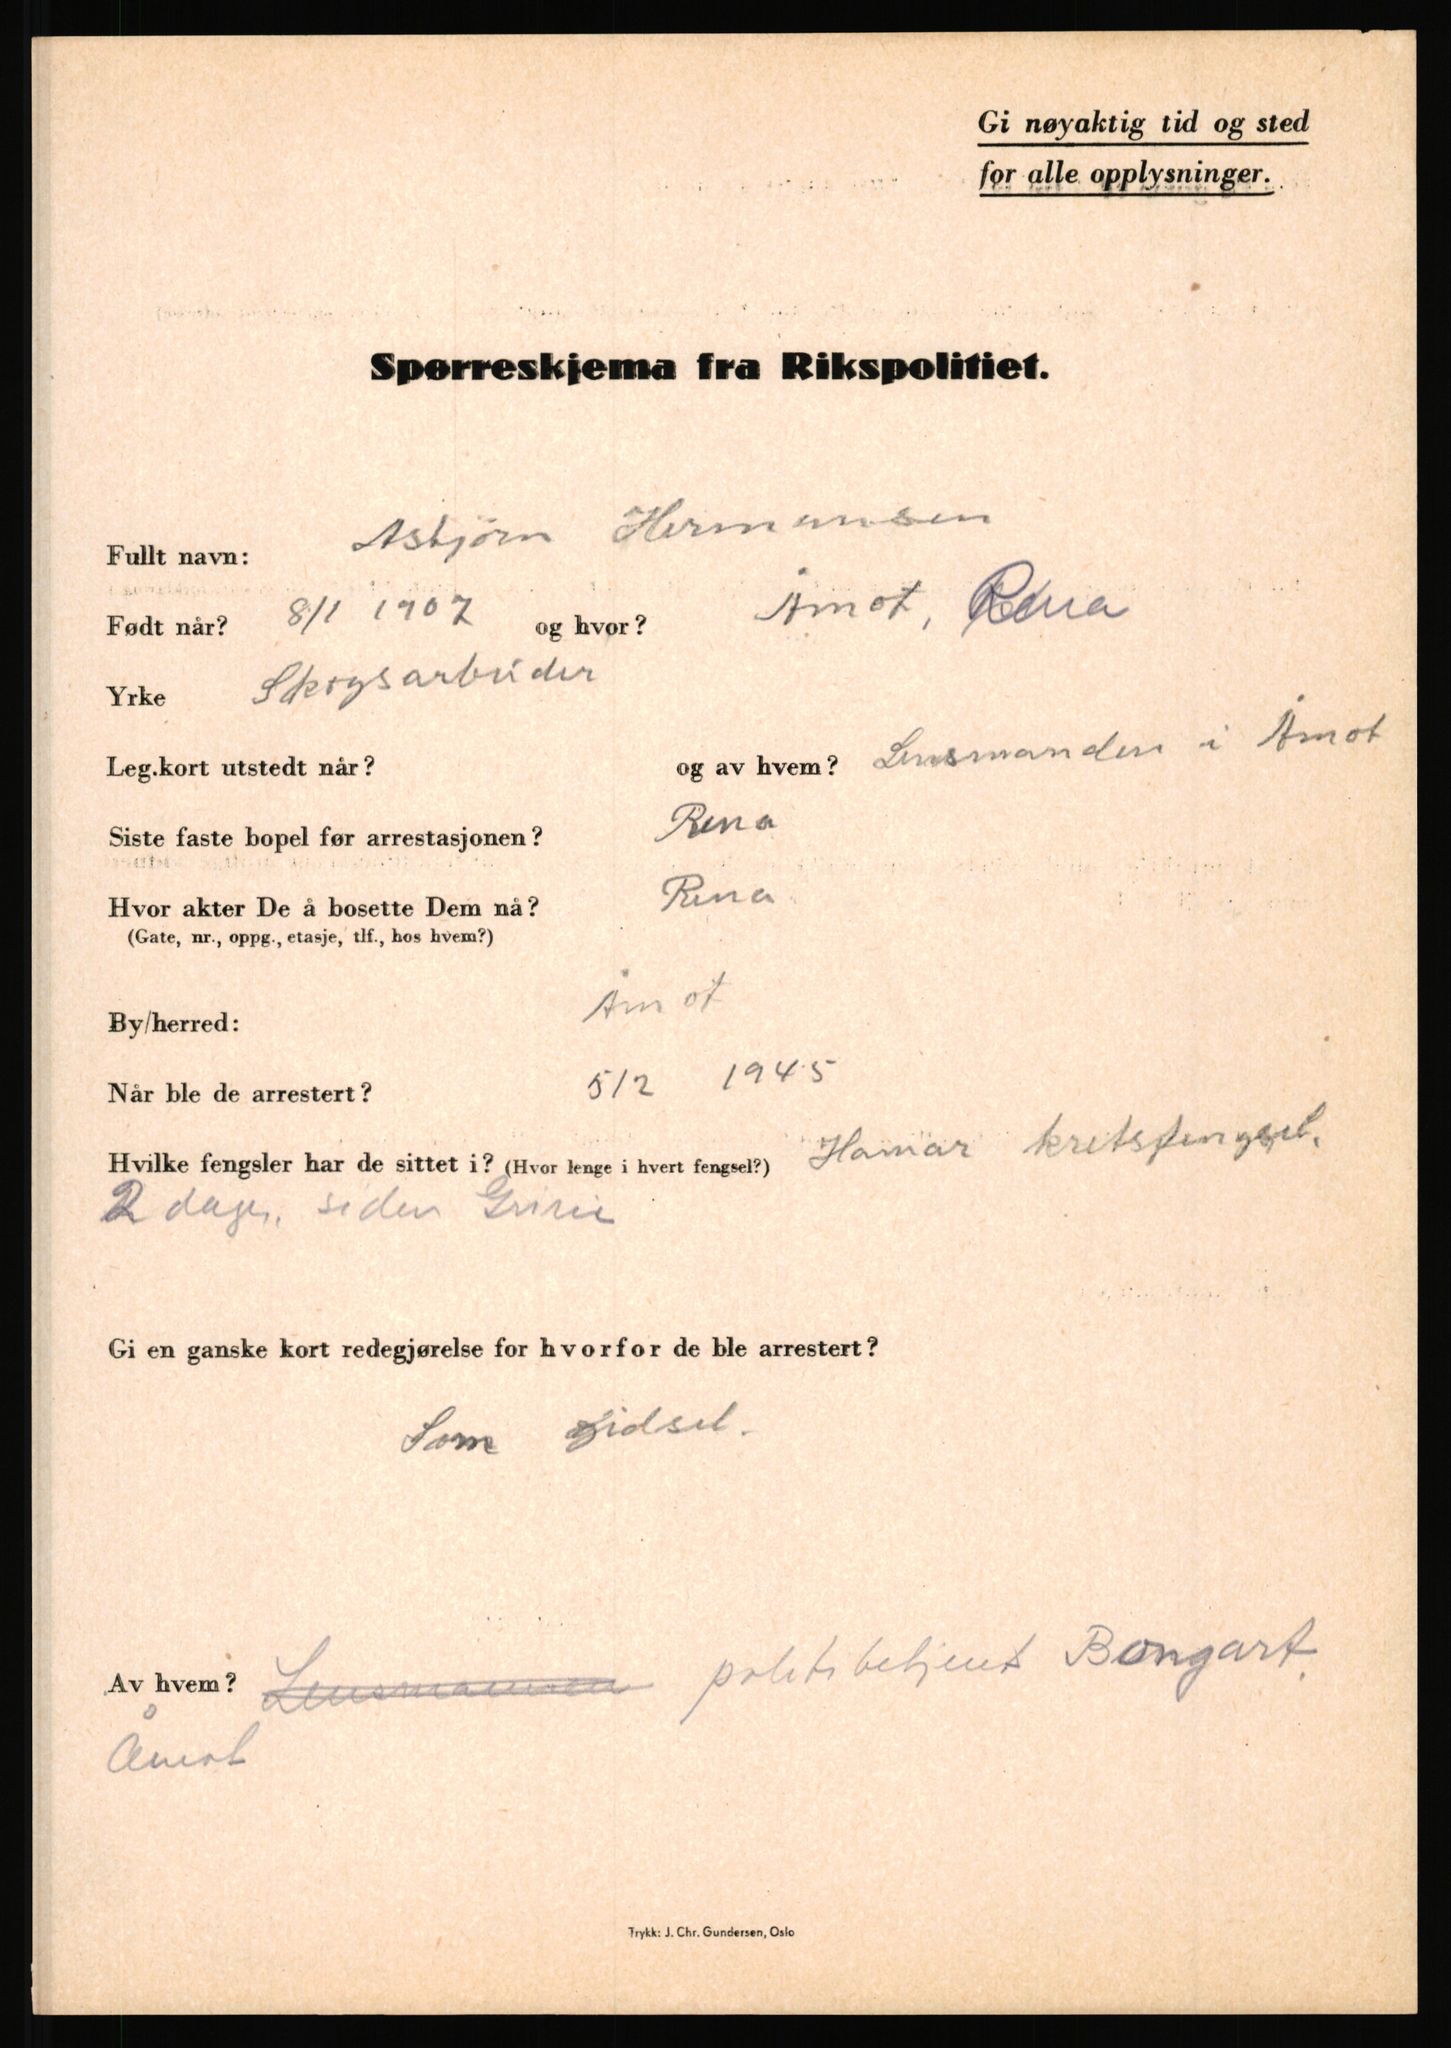 Gi nøyaktig tid og sted
for alle opplysninger.
Spørreskjema fra Rikspolitiet.
Fullt navn: Asbjørn Hermansen
Født når? 8/1 1907 og hvor? Åmot, Rena
Yrke Skogsarbeider
Leg.kort utstedt når? og av hvem? Lensmanden i Åmot
Siste faste bopel før arrestasjonen? Rena
Hvor akter De å bosette Dem nå? Rena
(Gate, nr., oppg., etasje, tlf., hos hvem?)
By/herred: Åmot
Når ble de arrestert? 5/2 1945
Hvilke fengsler har de sittet i? (Hvor lenge i hvert fengsel?) Hamar kretsfengsel.
2 dager, siden Grini
Gi en ganske kort redegjørelse for hvorfor de ble arrestert?
Som gidsel.
Av hvem? Lensmannen politibetjent Bongart.
Åmot
Trykk: J. Chr. Gundersen, Oslo